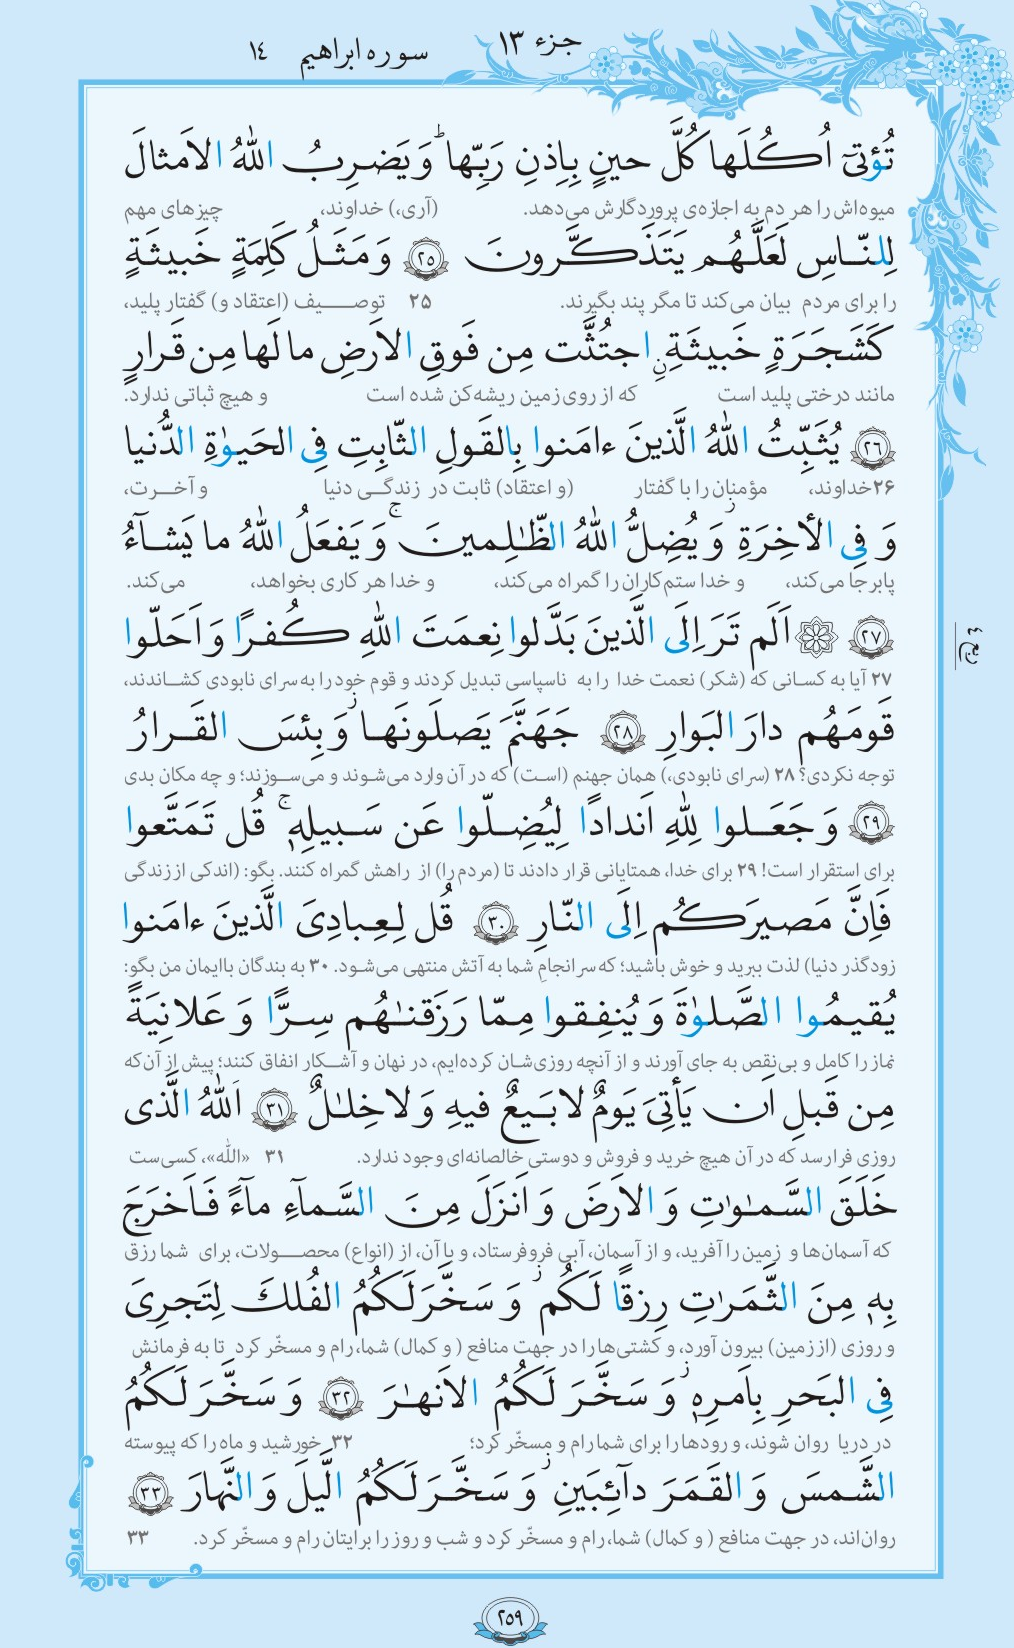 جزء ۱۳
سوره ابراهیم ۱۴
تُؤتیٓ اُکُلَها کُلَّ حینٍ بِاِذنِ رَبِّها ؕ وَ یَضرِبُ اللّٰهُ الاَمثالَ
میوه‌اش را هر دم به اجازه‌ی پروردگارش می‌دهد. (آری،) خداوند، چیزهای مهم
لِلنّاسِ لَعَلَّهُم یَتَذَکَّرونَ ﴿۲۵﴾ وَ مَثَلُ کَلِمَةٍ خَبیثَةٍ
را برای مردم بیان می‌کند تا مگر پند بگیرند. ۲۵ توصیف (اعتقاد و) گفتار پلید،
کَشَجَرَةٍ خَبیثَةِنِ اجتُثَّت مِن فَوقِ الاَرضِ ما لَها مِن قَرارٍ
مانند درختی پلید است که از روی زمین ریشه‌کن شده است و هیچ ثباتی ندارد.
﴿۲۶﴾ یُثَبِّتُ اللّٰهُ الَّذینَ ءامَنوا بِالقَولِ الثّابِتِ فِی الحَیوٰةِ الدُّنیا
۲۶ خداوند، مؤمنان را با گفتار (و اعتقاد) ثابت در زندگی دنیا و آخرت،
وَ فِی الأخِرَةِ ز وَ یُضِلُّ اللّٰهُ الظّٰلِمینَ ج وَ یَفعَلُ اللّٰهُ ما یَشآءُ
پابرجا می‌کند، و خدا ستم‌کاران را گمراه می‌کند، و خدا هر کاری بخواهد، می‌کند.
﴿۲۷﴾ ۞ اَلَم تَرَ اِلَی الَّذینَ بَدَّلوا نِعمَتَ اللّٰهِ کُفرًا وَ اَحَلّوا
۲۷ آیا به کسانی که (شکر) نعمت خدا را به ناسپاسی تبدیل کردند و قوم خود را به سرای نابودی کشاندند،
ربع ٤
قَومَهُم دارَ البَوارِ ﴿۲۸﴾ جَهَنَّمَ یَصلَونَها ز وَ بِئسَ القَرارُ
توجه نکردی؟ ۲۸ (سرای نابودی،) همان جهنم (است) که در آن وارد می‌شوند و می‌سوزند؛ و چه مکان بدی
﴿۲۹﴾ وَ جَعَلوا لِلّٰهِ اَندادًا لِیُضِلّوا عَن سَبیلِهٖ ج قُل تَمَتَّعوا
برای استقرار است! ۲۹ برای خدا، همتایانی قرار دادند تا (مردم را) از راهش گمراه کنند. بگو: (اندکی از زندگی
فَاِنَّ مَصیرَکُم اِلَی النّارِ ﴿۳۰﴾ قُل لِعِبادِیَ الَّذینَ ءامَنوا
زودگذر دنیا) لذت ببرید و خوش باشید؛ که سرانجامِ شما به آتش منتهی می‌شود. ۳۰ به بندگان باایمان من بگو:
یُقیمُوا الصَّلوٰةَ وَ یُنفِقوا مِمّا رَزَقنٰهُم سِرًّا وَ عَلانِیَةً
نماز را کامل و بی‌نقص به جای آورند و از آنچه روزی‌شان کرده‌ایم، در نهان و آشکار انفاق کنند؛ پیش از آن‌که
مِن قَبلِ اَن یَأتِیَ یَومٌ لا بَیعٌ فیهِ وَ لا خِلٰلٌ ﴿۳۱﴾ اَللّٰهُ الَّذی
روزی فرا رسد که در آن هیچ خرید و فروش و دوستی خالصانه‌ای وجود ندارد. ۳۱ «اللّٰه»، کسی‌ست
خَلَقَ السَّمٰوٰتِ وَ الاَرضَ وَ اَنزَلَ مِنَ السَّمآءِ مآءً فَاَخرَجَ
که آسمان‌ها و زمین را آفرید، و از آسمان، آبی فروفرستاد، و با آن، از (انواع) محصولات، برای شما رزق
بِهٖ مِنَ الثَّمَرٰتِ رِزقًا لَکُم ز وَ سَخَّرَ لَکُمُ الفُلکَ لِتَجرِیَ
و روزی (از زمین) بیرون آورد، و کشتی‌ها را در جهت منافع (و کمال) شما، رام و مسخّر کرد تا به فرمانش
فِی البَحرِ بِاَمرِهٖ ز وَ سَخَّرَ لَکُمُ الاَنهٰرَ ﴿۳۲﴾ وَ سَخَّرَ لَکُمُ
در دریا روان شوند، و رودها را برای شما رام و مسخّر کرد؛ ۳۲ خورشید و ماه را که پیوسته
الشَّمسَ وَ القَمَرَ دآئِبَینِ ز وَ سَخَّرَ لَکُمُ الَّیلَ وَ النَّهارَ ﴿۳۳﴾
روان‌اند، در جهت منافع (و کمال) شما، رام و مسخّر کرد و شب و روز را برایتان رام و مسخّر کرد. ۳۳
۲۵۹